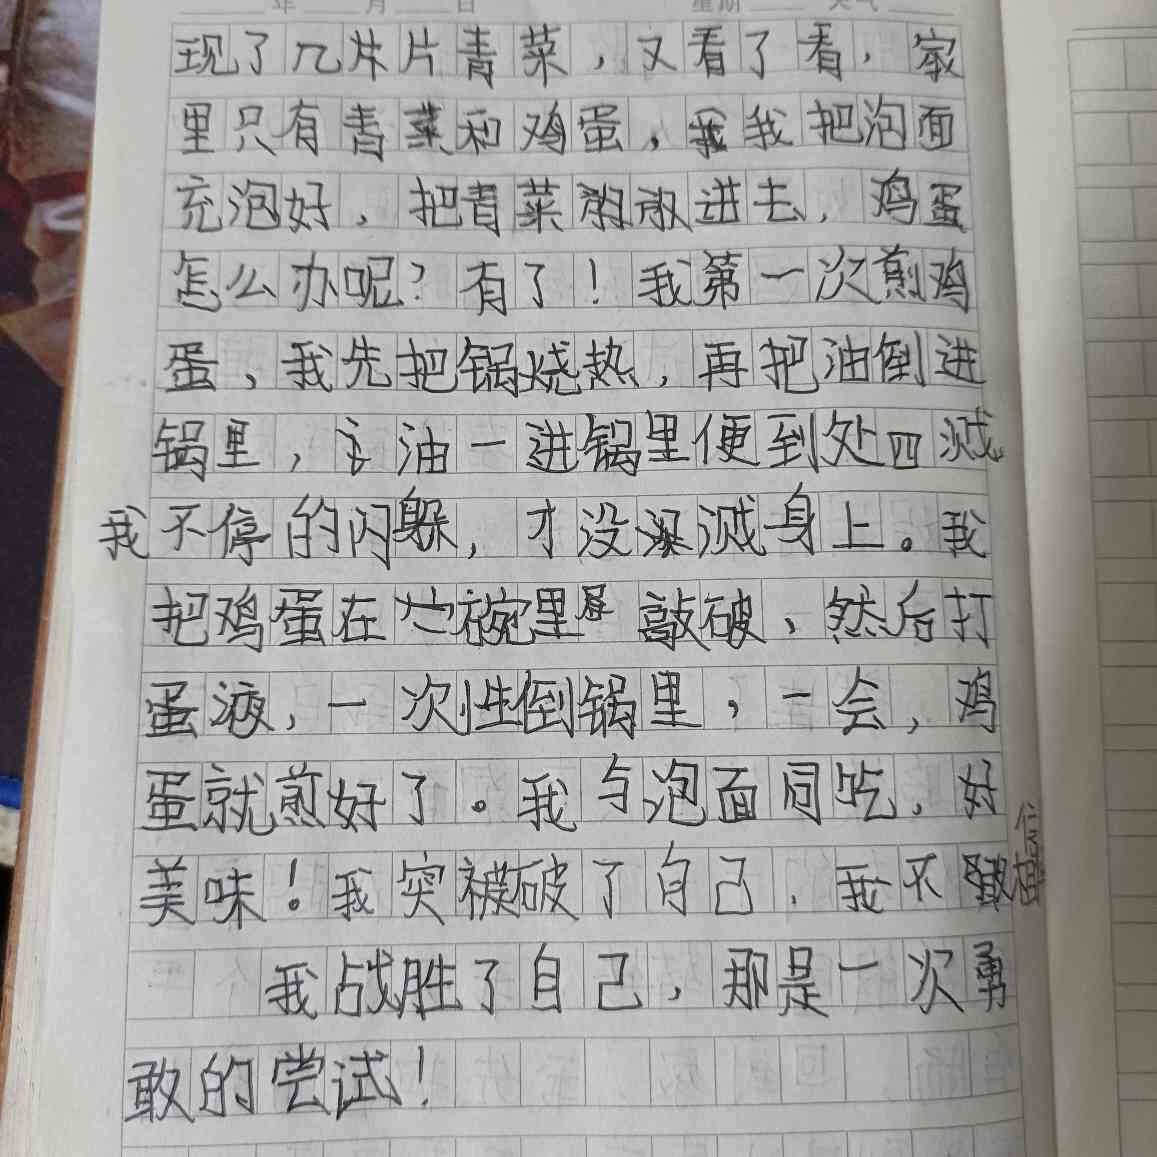 年 月 日 星期 天气
现了几片片青菜，又看了看，家
里只有青菜和鸡蛋，我我把泡面
充泡好，把青菜放进去，鸡蛋
怎么办呢？有了！我第一次煎鸡
蛋，我先把锅烧热，再把油倒进
锅里，油一进锅里便到处四溅
我不停的闪躲，才没溅身上。我
把鸡蛋在碗里敲破，然后打
蛋液，一次性倒锅里，一会，鸡
蛋就煎好了。我与泡面同吃，好
美味！我突破了自己，我不
我战胜了自己，那是一次勇
敢的尝试！